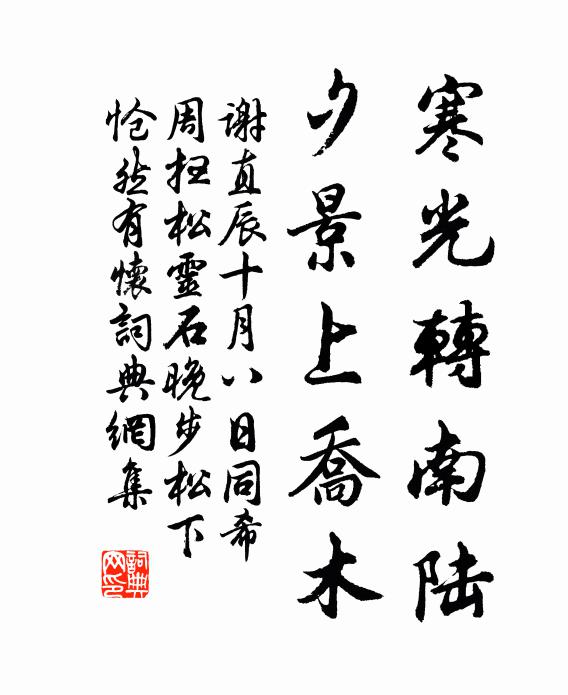 寒光轉南陆
夕景上喬木
謝直辰十月八日同希
周抂松靈石晚步松下
怆然有懷詞典網集
詞典
网印